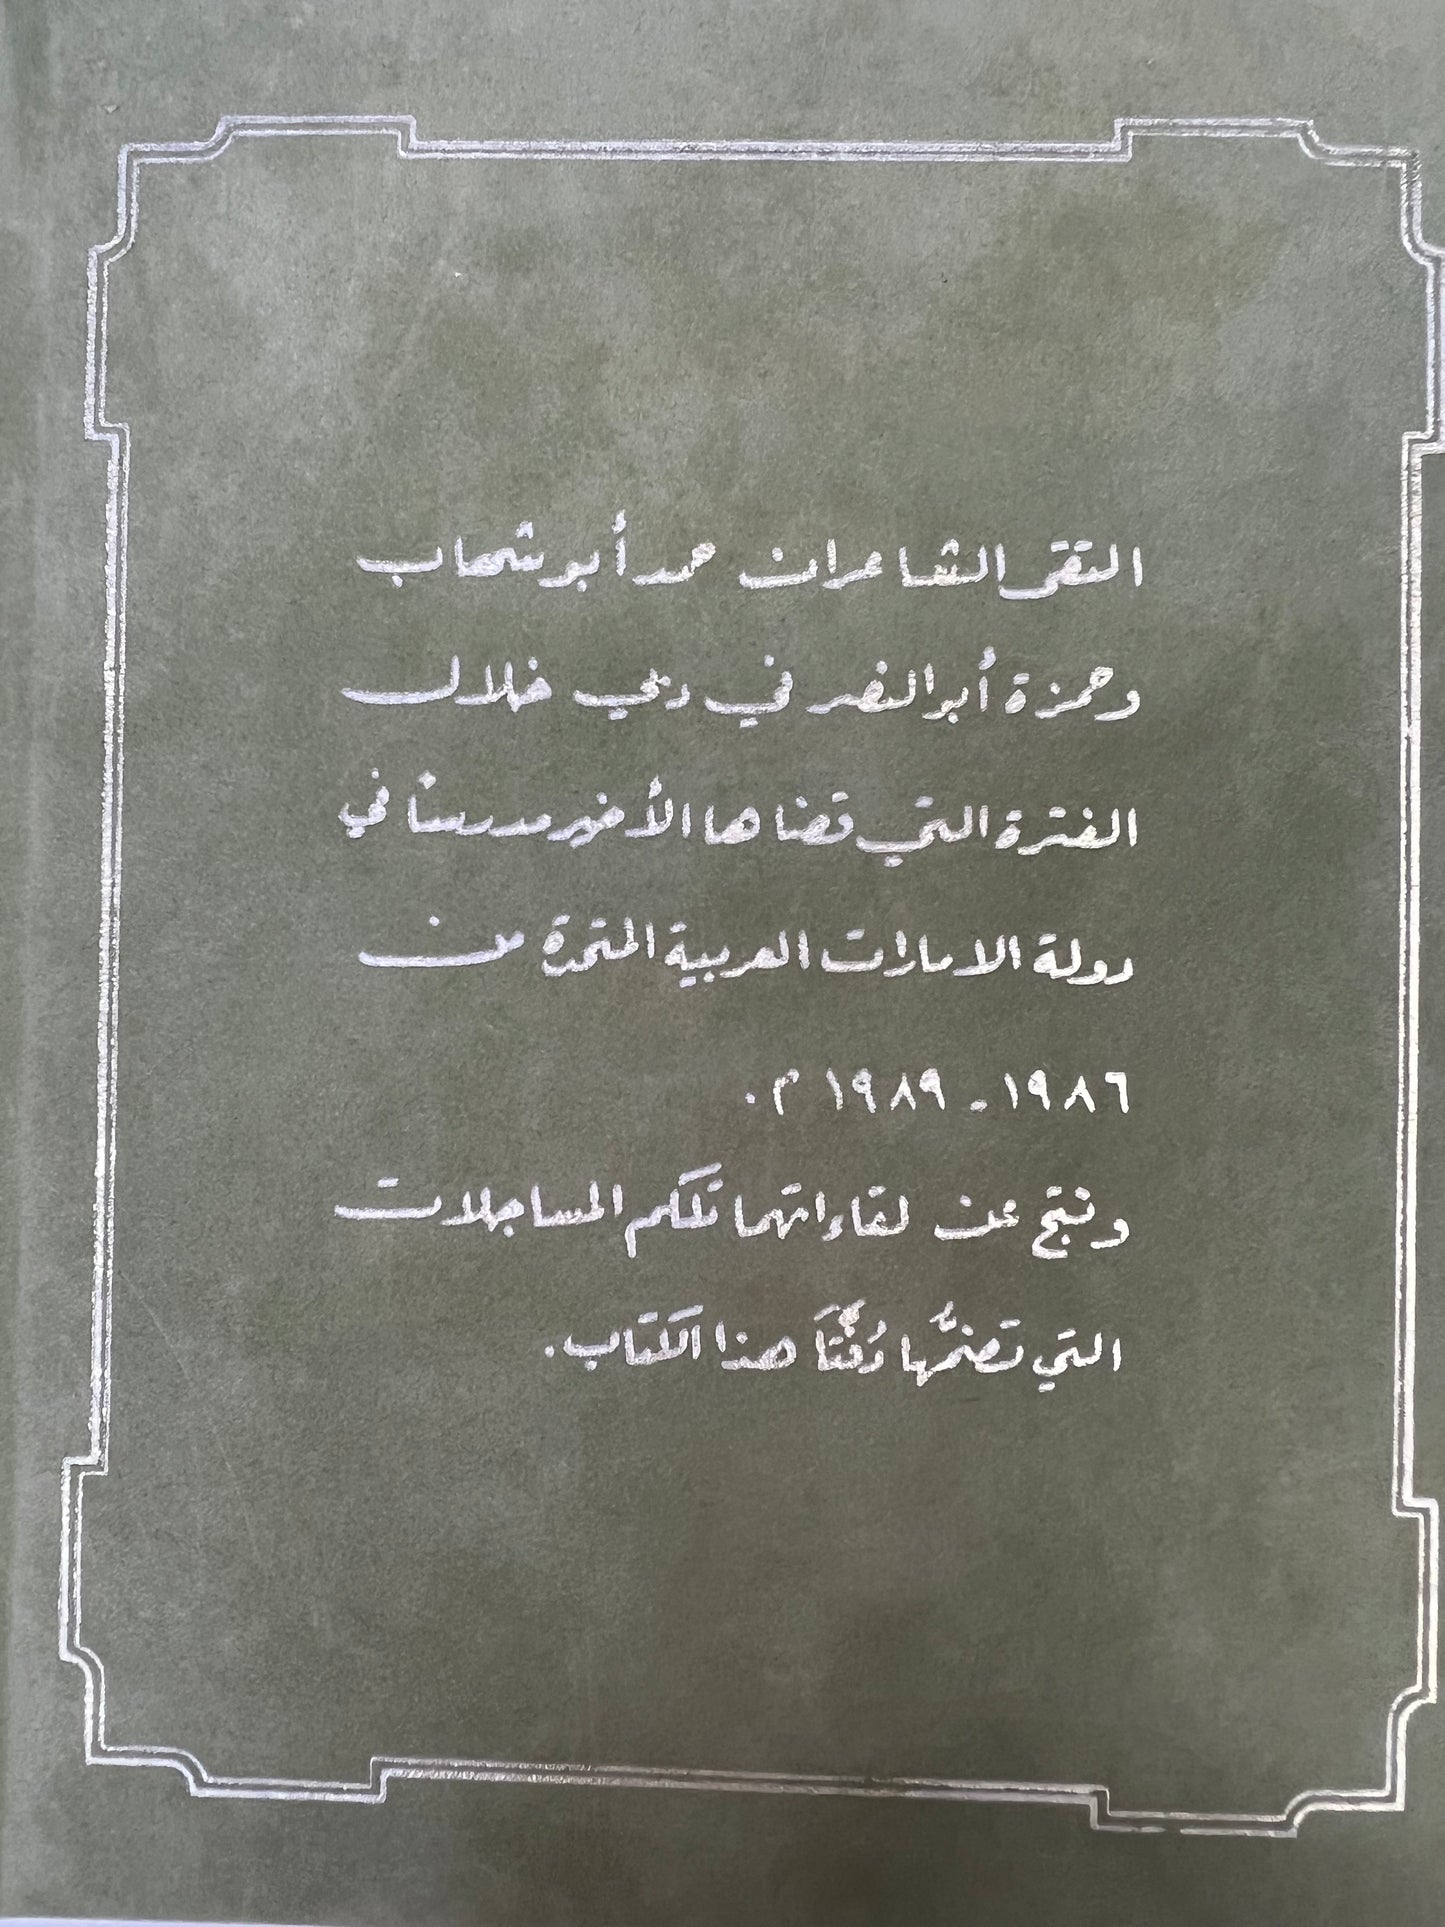 التقى الشاعران حمد أبو شهاب
وحمزة أبو النصر في دبي خلال
الفترة التي قضاها الأخير مدرسا في
دولة الامارات العربية المتحدة من
١٩٨٦ - ١٩٨٩ م .
ونتج عن لقاءاتهما تلكم المساجلات
التي تضمُّها دُفَّتَا هذا الكتاب .